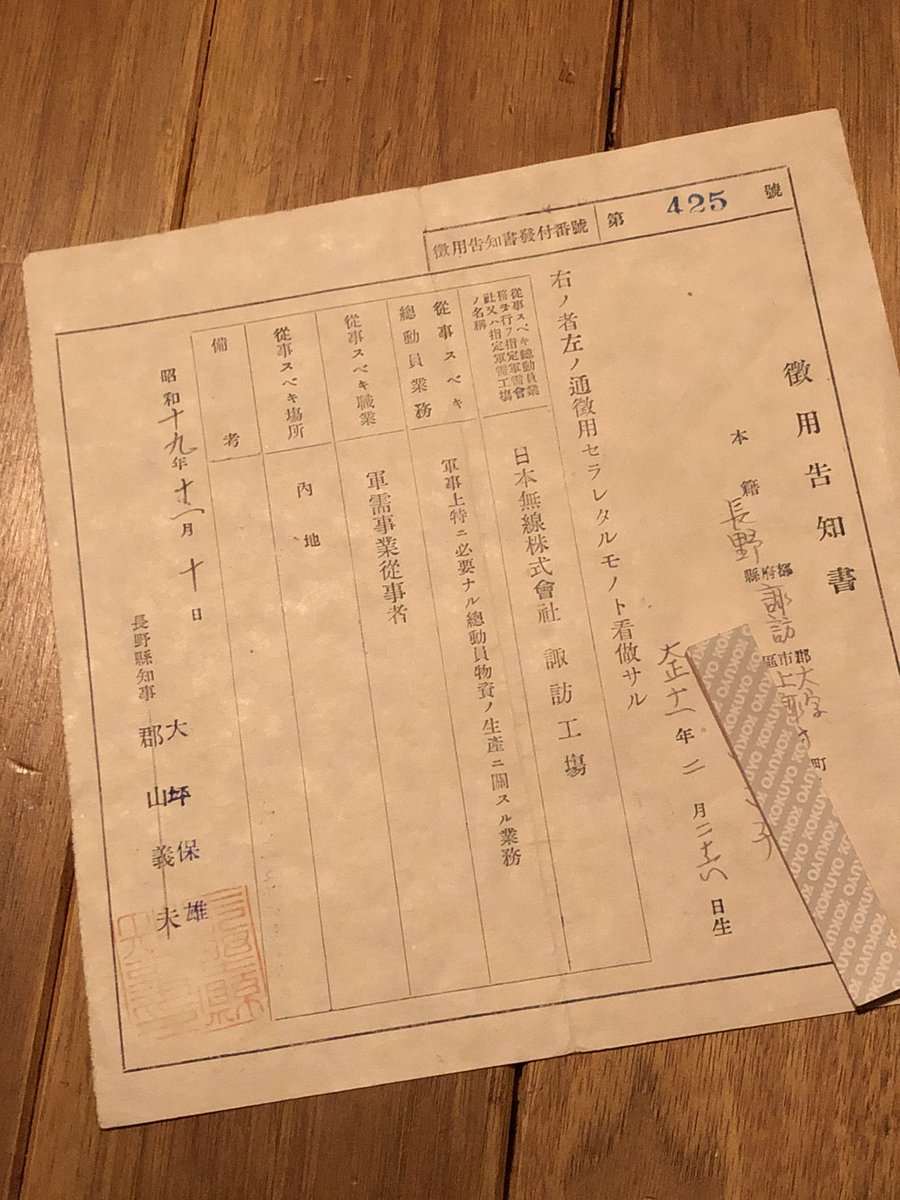 徴用告知書發付番號 第 425 號
徴用告知書
本籍 長野 都府縣 諏訪 郡市區 上 町
大正十一年 二 月二十六日生
右ノ者左ノ通徴用セラレタルモノト看做サル
從事スベキ總動員業務ヲ行フ指定軍需會社又ハ指定軍需工場ノ名稱
日本無線株式會社 諏訪工場
從事スベキ總動員業務
軍事上特ニ必要ナル總動員物資ノ生産ニ關スル業務
從事スベキ職業
軍需事業從事者
從事スベキ場所
内地
備考
昭和十九年十一月十日
長野縣知事 郡山義夫
大坪保雄
KOKUYO KOKUYO KOKUYO